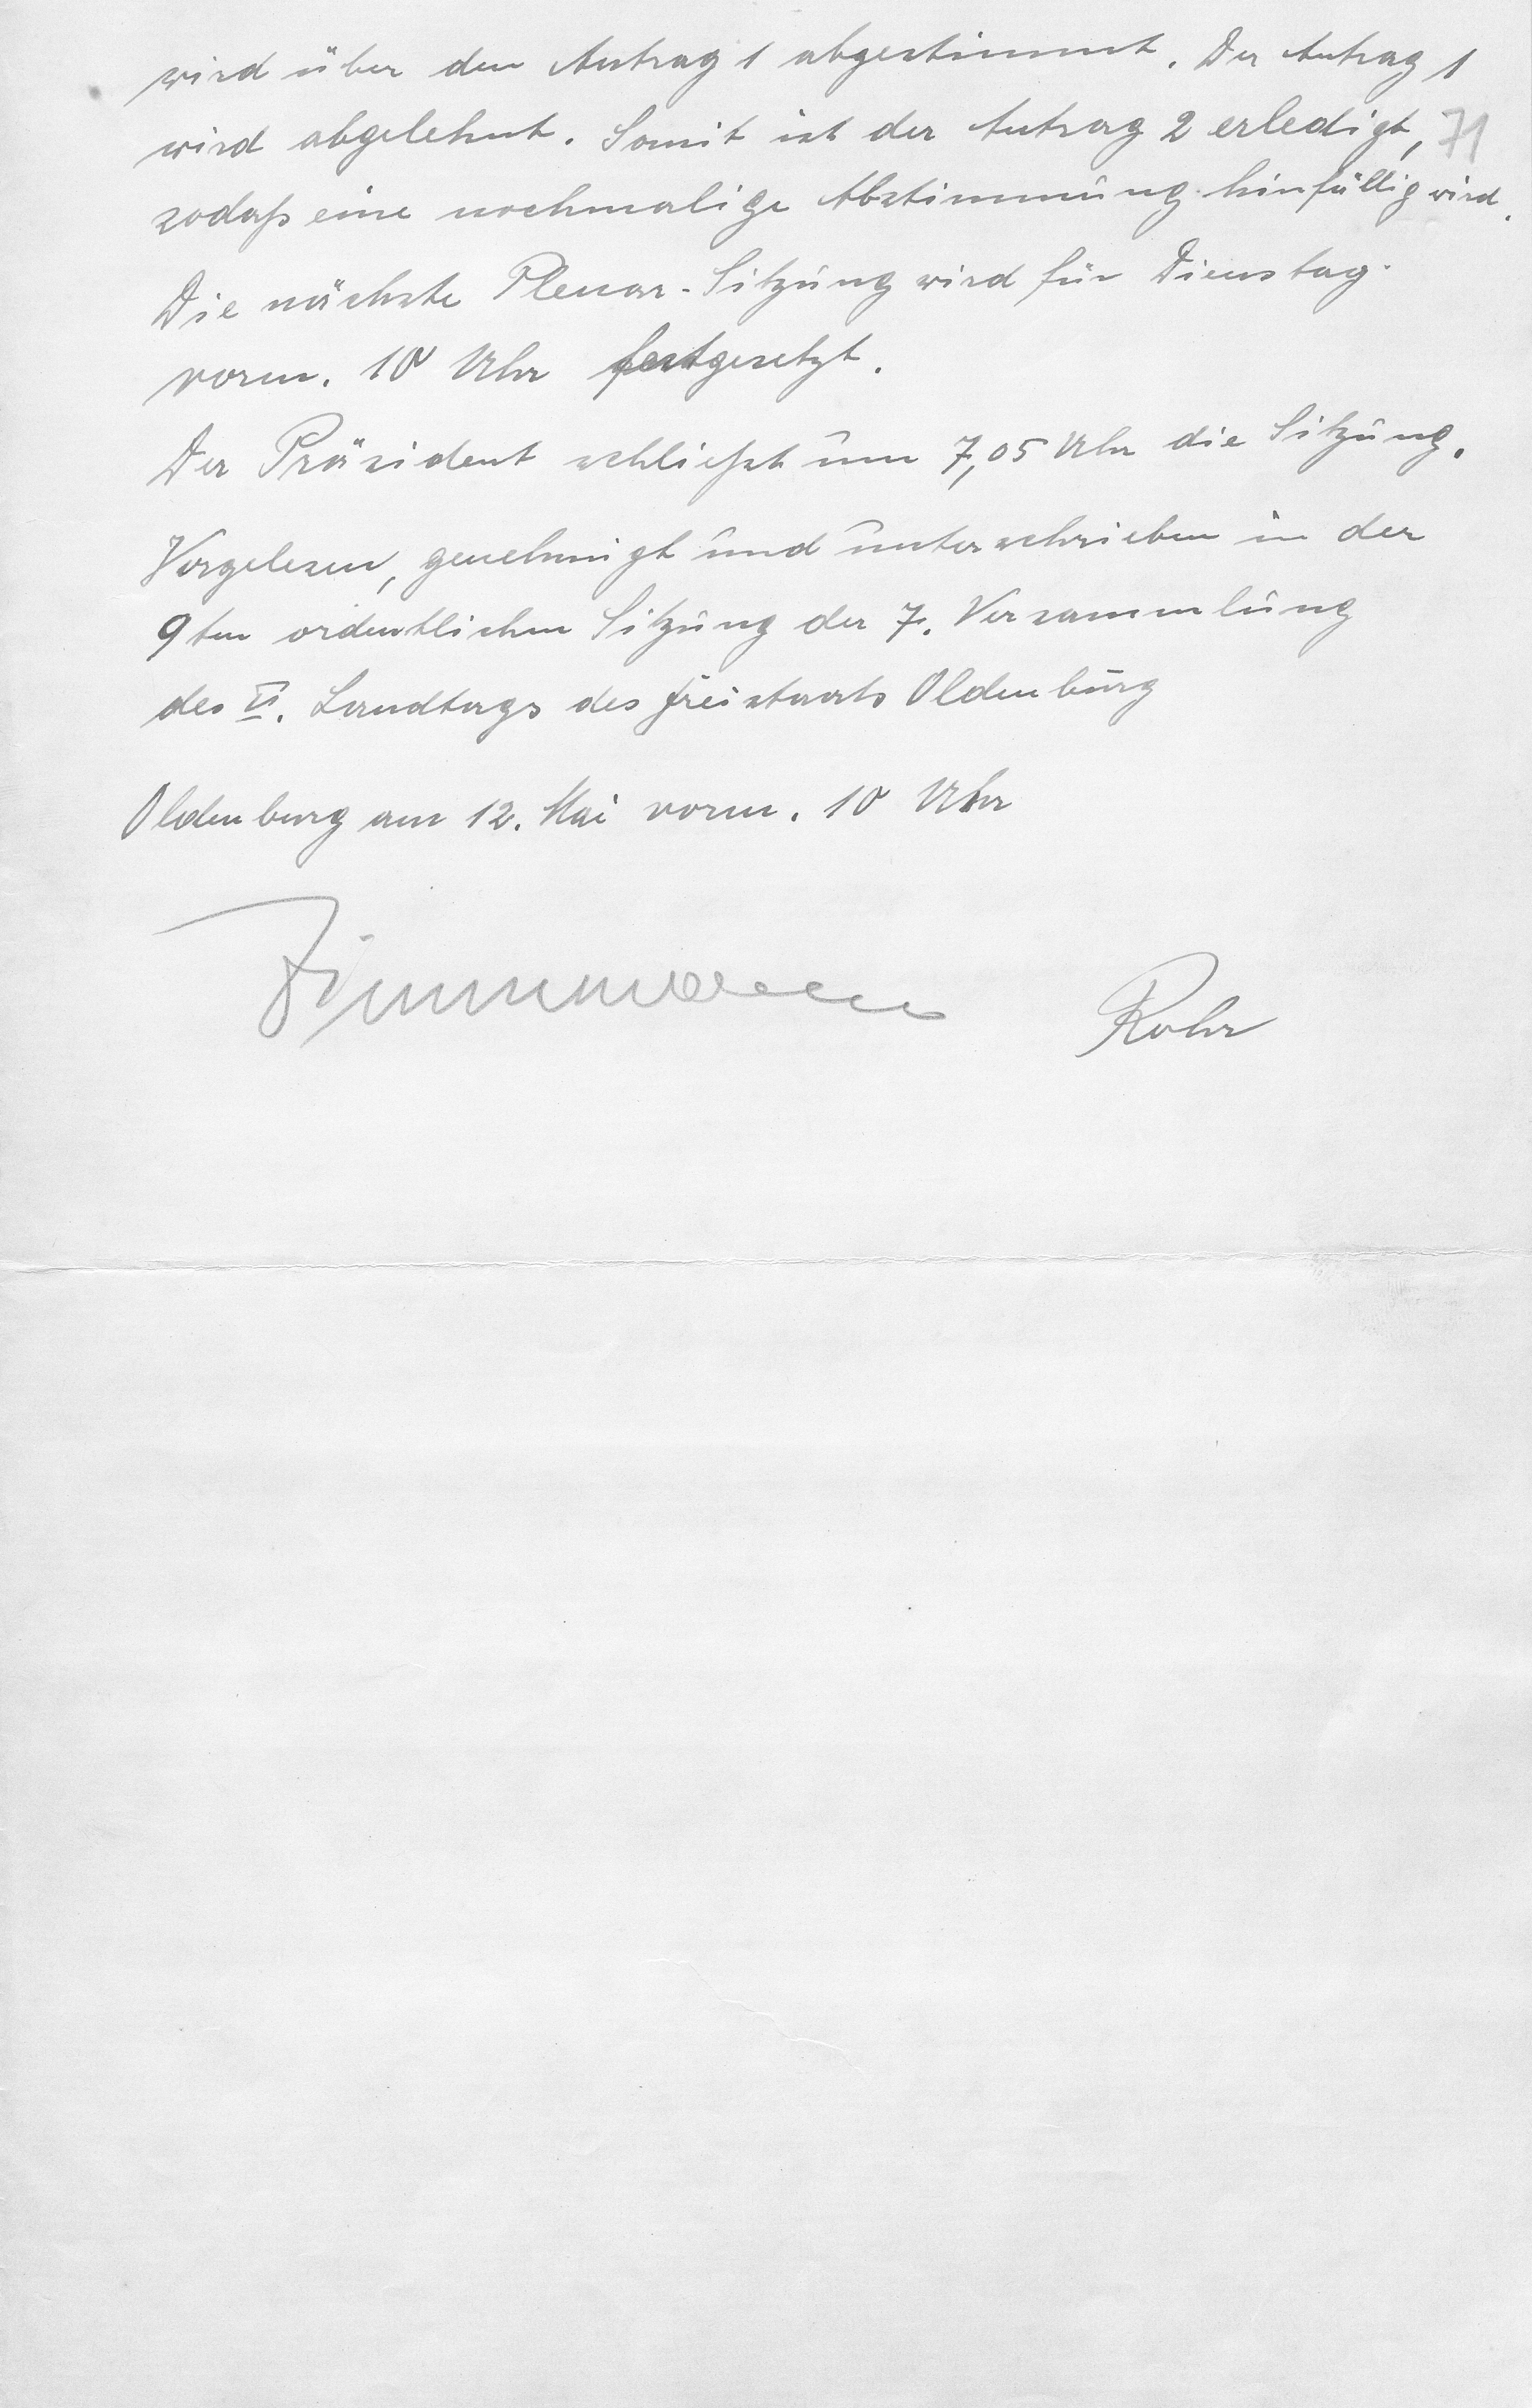 wird über den Antrag 1 abgestimmt. Der Antrag 1
wird abgelehnt. Somit ist der Antrag 2 erledigt, 71
sodaß eine nochmalige Abstimmung hinfällig wird.
Die nächste Plenar-Sitzung wird für Dienstag
vorm. 10 Uhr festgesetzt.
Der Präsident schließt um 7,05 Uhr die Sitzung.
Vorgelesen, genehmigt und unterschrieben in der
9ten ordentlichen Sitzung der 7. Versammlung
des Landtags des Freistaats Oldenburg
Oldenburg am 12. Mai vorm. 10 Uhr
Zimmermann Rohr